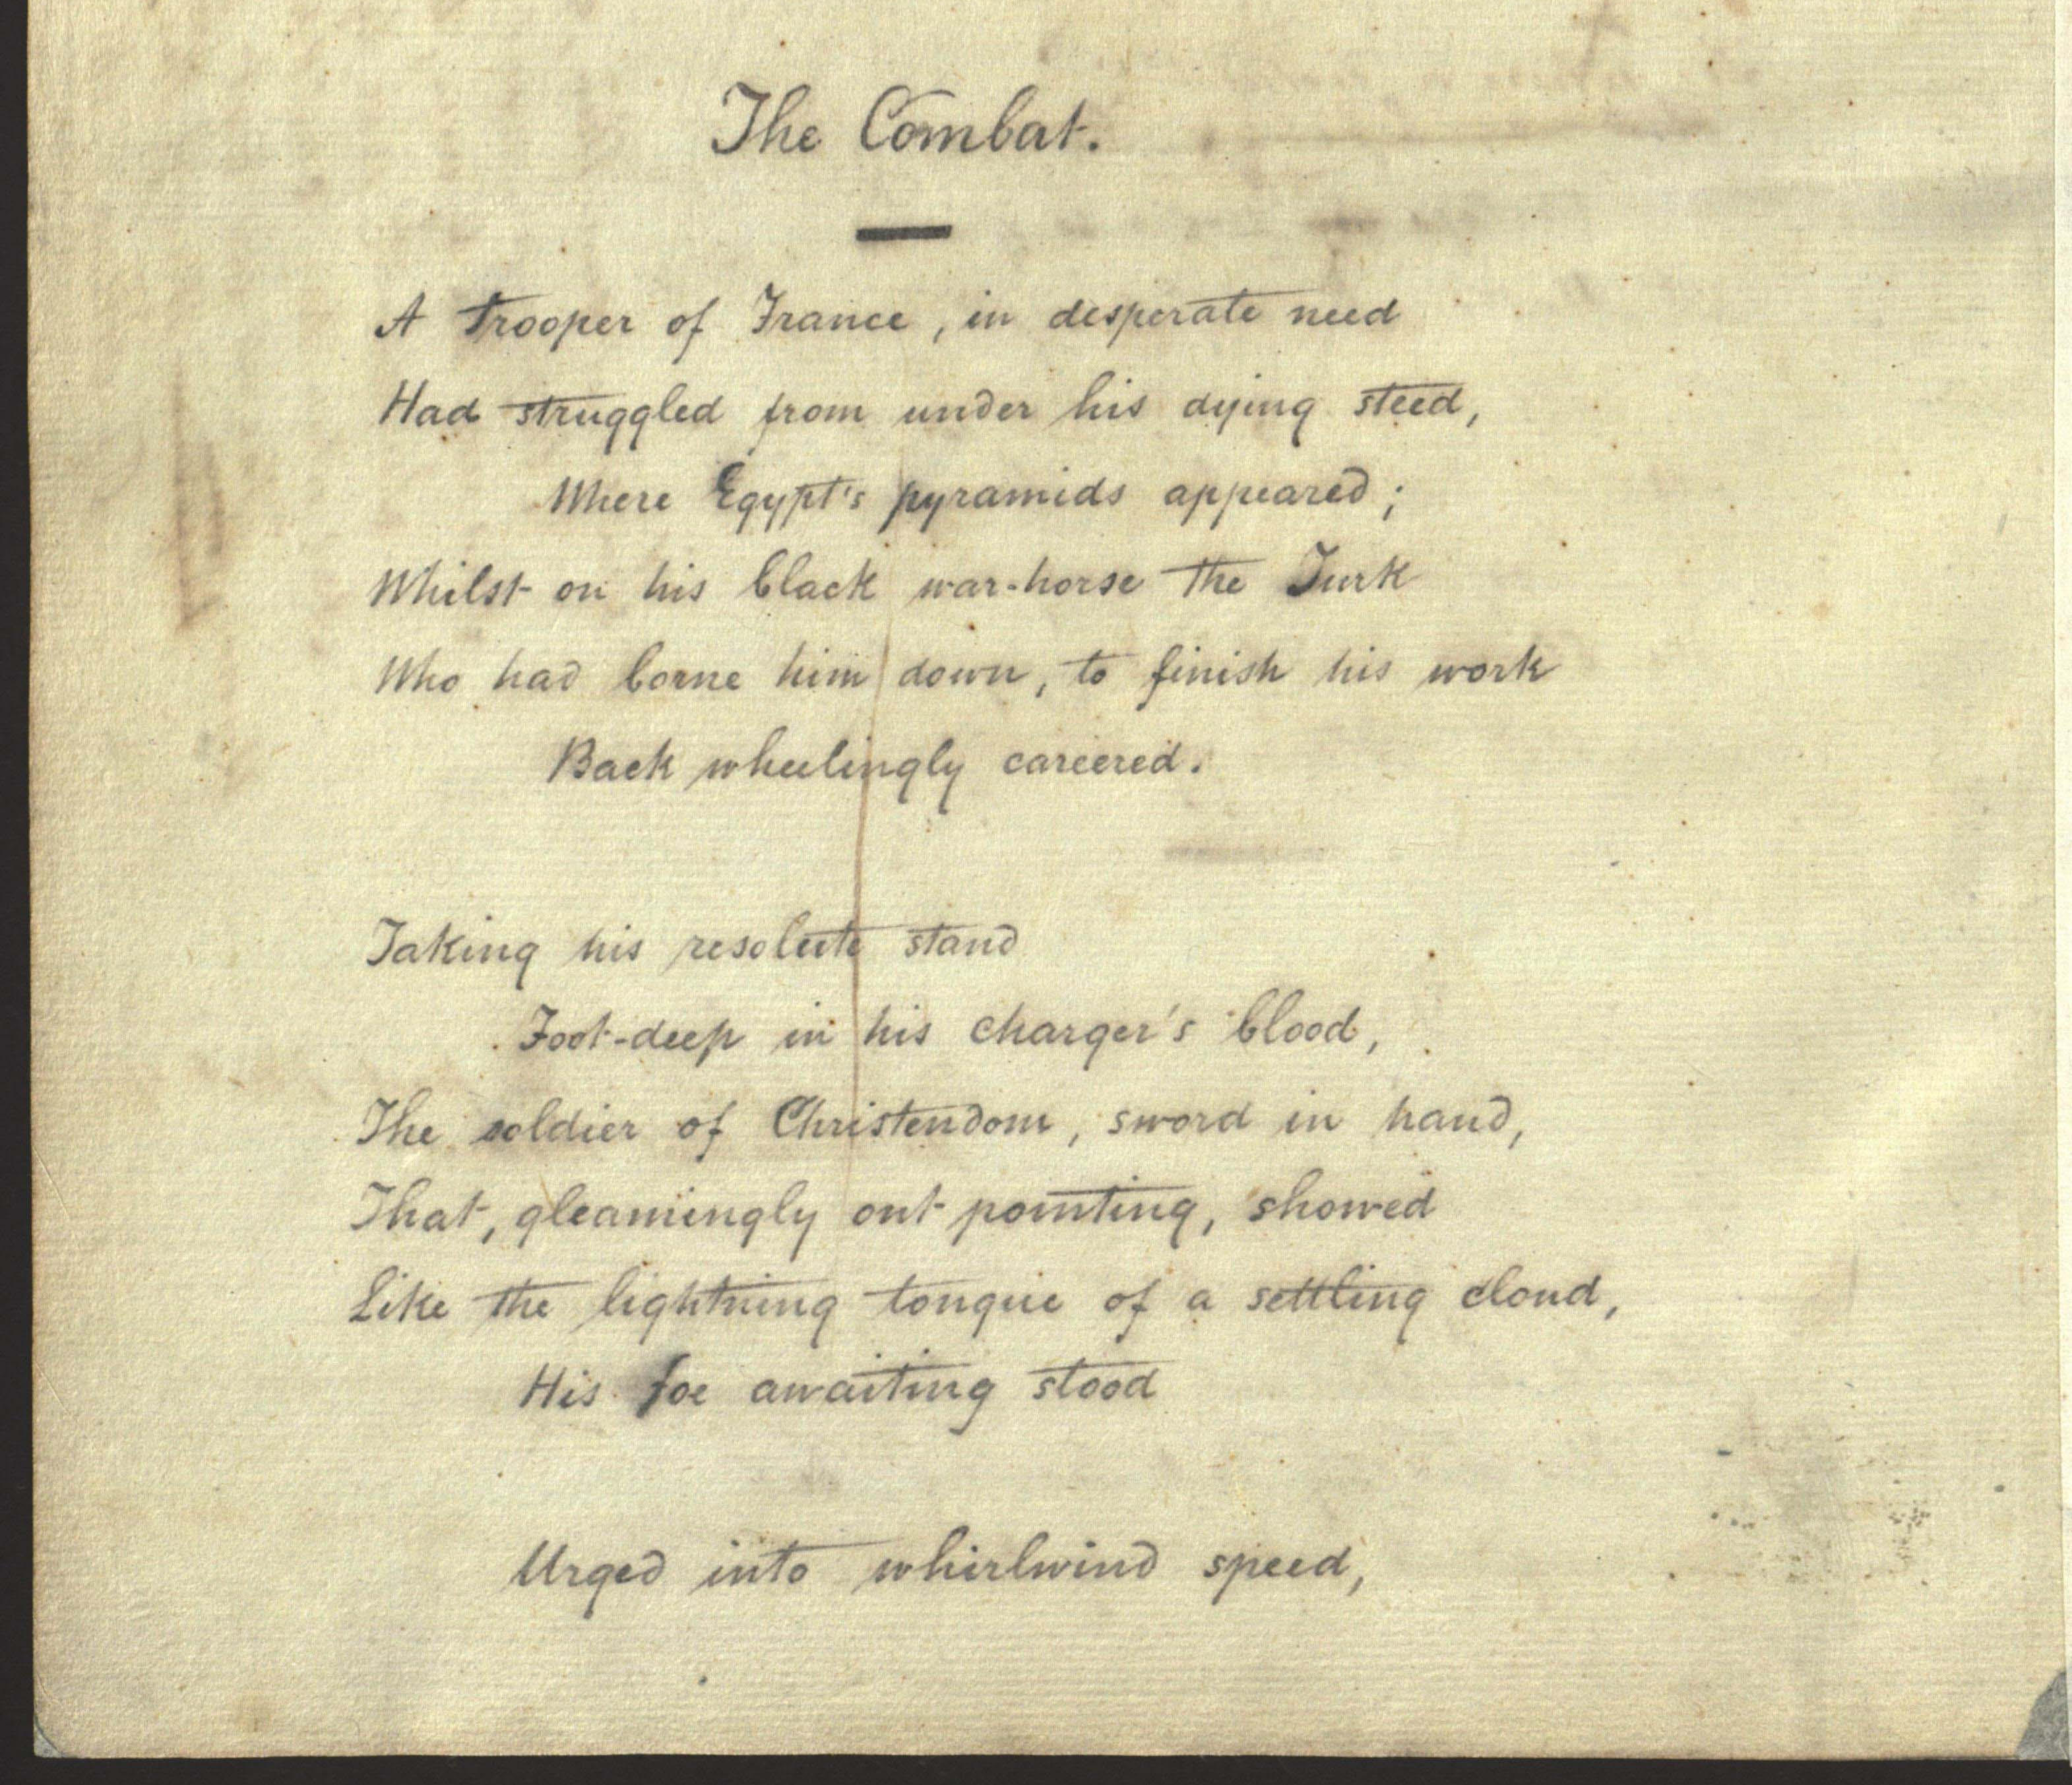 The Combat.
A Trooper of France, in desperate need
Had struggled from under his dying steed,
Where Egypt's pyramids appeared;
Whilst on his black war-horse the Turk
Who had borne him down, to finish his work
Back wheelingly careered.
Taking his resolute stand
Foot-deep in his charger's blood,
The soldier of Christendom, sword in hand,
That, gleamingly out pointing, showed
Like the lightning tongue of a settling cloud,
His foe awaiting stood
Urged into whirlwind speed,